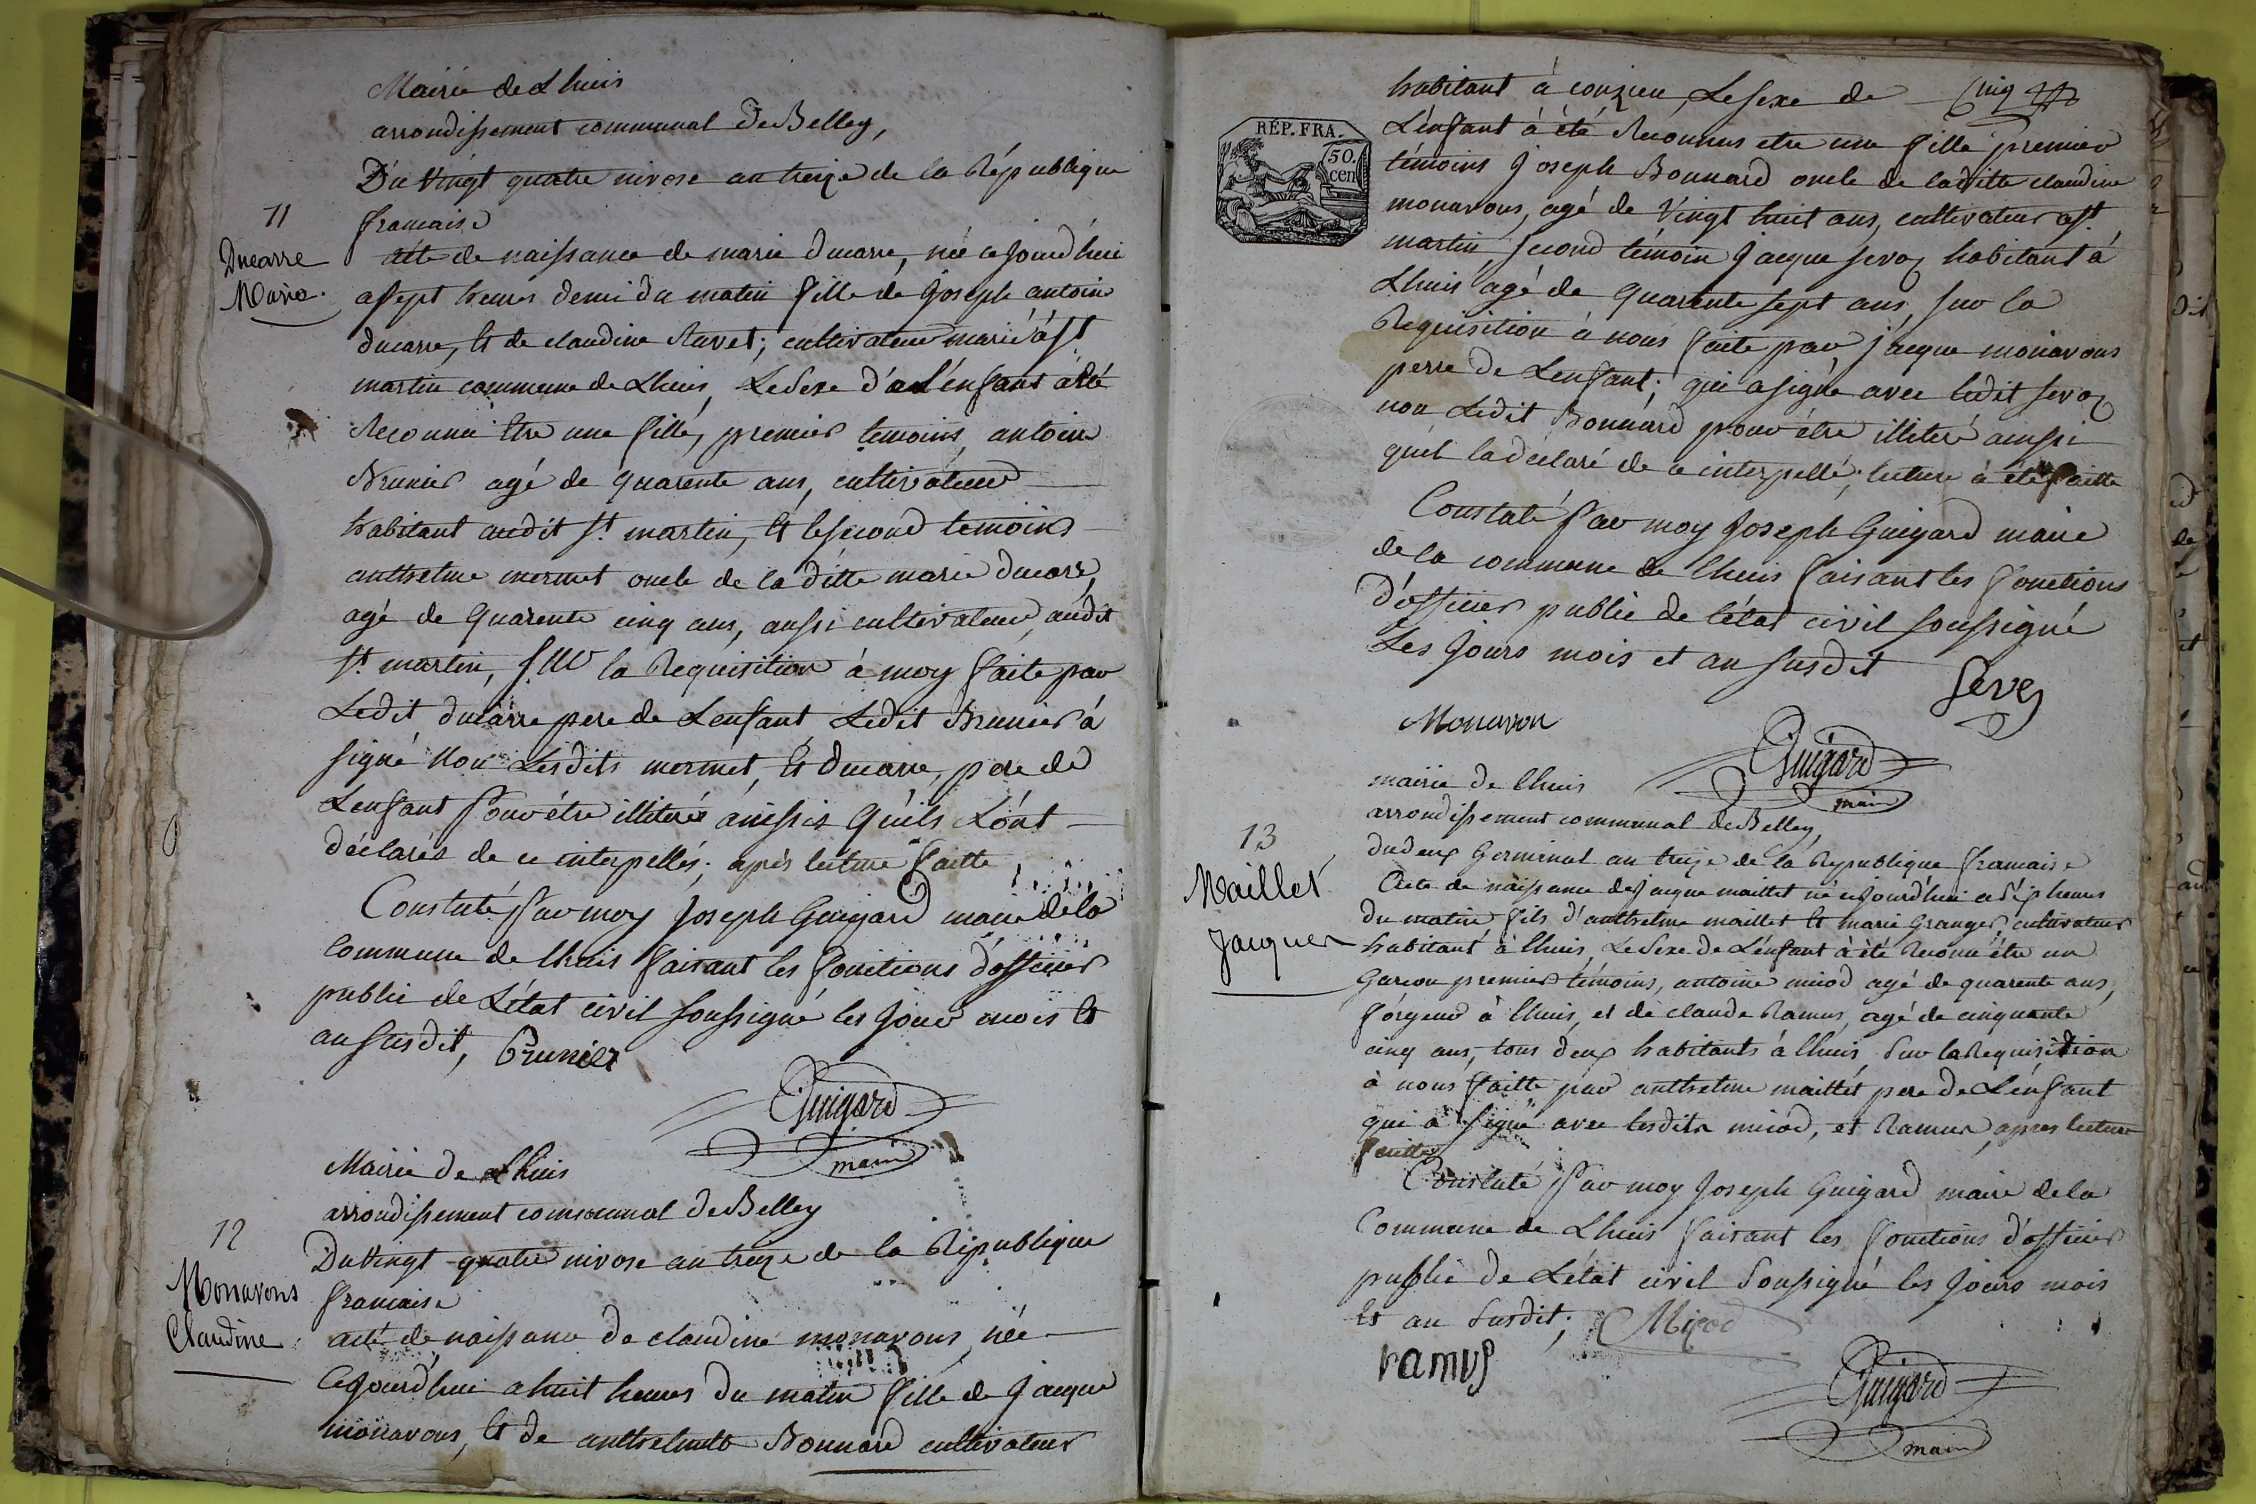 Mairie de Lhuis
arrondissement communal de Belley,
Du Vingt quatre nivose an treize de la République
francaise
11
Ducarre
Marie.
Acte de naissance de marie ducarre, née cejourd'hui
a sept heures demi du matin fille de joseph antoine
ducarre, et de claudine Ravet; cultivateur marié à st
martin commune de Lhuis, Le Sexe d'e L'enfant a été
Reconnu être une fille, premier temoins, antoine
Brunier agé de quarente ans, cultivateur
habitant audit st. martin, et le second temoins
anthelme mermet oncle de la ditte marie ducarre,
agé de quarente cinq ans, aussi cultivateur, audit
st. martin, sur la Requisition à moy faite par
Ledit ducarre pere de L'enfant, Ledit Brunier à
signé non Lesdits mermet, et ducarre, pere de
L'enfant pour être illiterés ainssis qu'ils L'ont
déclarés de ce interpellés; après lecture faitte
Constaté par moy Joseph Guigard maire de la
Commune de lhuis faisant les fonctions d'officier
public de L'état civil soussigné les jour mois et
an susdit, Brunier
Guigard
maire
Mairie de Lhuis
arrondissement communal de Belley
Du Vingt quatre nivose an treize de la République
francaise
12
Monavons
Claudine
acte de naissance de claudine monavons, née
Cejourd'hui a huit heures du matin fille de jacque
monavons, et de anthelmette Bonnard cultivateur
habitant à conzieu, Le sexe de Cinq
RÉP. FRA.
50.
cen
L'enfant à été Reconnus etre une fille premier
témoins joseph Bonnard oncle de laditte claudine
monavons, agé de Vingt huit ans, cultivateur a st.
martin, second témoin jacque sevoz habitant à
Lhuis agé de quarente sept ans, sur la
Requisition à nous faite par jacque monavons
perre de L'enfant; qui a signé avec ledit sevoz
non Ledit Bonnard pour être illiteré ainssi
qu'il la déclaré de ce interpellé; lecture à été faitte
Constaté par moy Joseph Guigard maire
de la commune de lhuis faisant les fonctions
d'officier public de l'état civil soussigné
Les jours mois et an susdit
Monavon
Guigard
maire
mairie de lhuis
arrondissement communal de Belley,
du deux Germinal an treize de la Republique francaise
13
Maillet
Jacques
Acte de naissance de jacque maillet né cejourd'hui a dix heures
du matin fils d'anthelme maillet et marie Granger, cultivateur
habitant à lhuis, Le Sexe de L'enfant à été Reconu être un
Garcon premier témoins, antoine micod agé de quarente ans,
forgeur à lhuis, et de claude Ramus, agé de cinquante
cinq ans, tous deux habitants à lhuis, sur la Requisition
à nous faitte par anthelme maillet pere de L'enfant
qui à signé avec lesdits micod, et Ramus, apres lecture
faitte
Constaté par moy Joseph Guigard maire de la
Commune de Lhuis faisant les fonctions d'officier
publie de L'état civil soussigné les jours mois
et an susdit; Micod
ramus
Guigard
maire